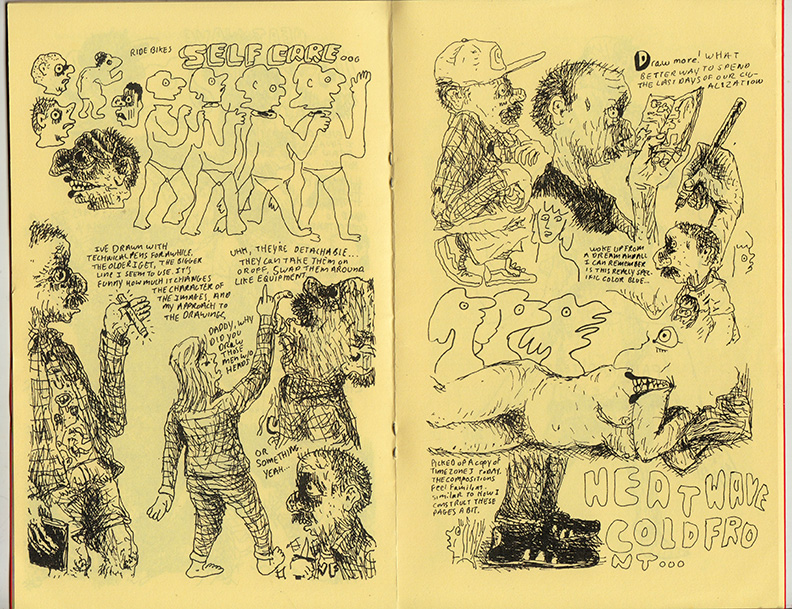 RIDE BIKES
SELF CARE...
IVE DRAWN WITH
TECHNICAL PENS FOR AWHILE.
THE OLDER I GET, THE BIGGER
LINE I SEEM TO USE. IT'S
FUNNY HOW MUCH IT CHANGES
THE CHARACTER OF
THE IMAGES, AND
MY APPROACH TO
THE DRAWINGS.
UHH, THEY'RE DETACHABLE...
THEY CAN TAKE THEM ON
OR OFF, SWAP THEM AROUND
LIKE EQUIPMENT
DADDY, WHY
DID YOU
DRAW
THOSE
MEN W/O
HEADS
OR
SOMETHING,
YEAH...
Draw more! WHAT
BETTER WAY TO SPEND
THE LAST DAYS OF OUR CIV-
ALIZATION
WOKE UP FROM
A DREAM AND ALL
I CAN REMEMBER
IS THIS REALLY SPEC-
IFIC COLOR BLUE...
PICKED UP A COPY OF
TIME ZONE J TODAY.
THE COMPOSITIONS
FEEL FAMILIAR.
SIMILAR TO HOW I
CONSTRUCT THESE
PAGES A BIT.
HEATWAVE
COLDFRO
NT...